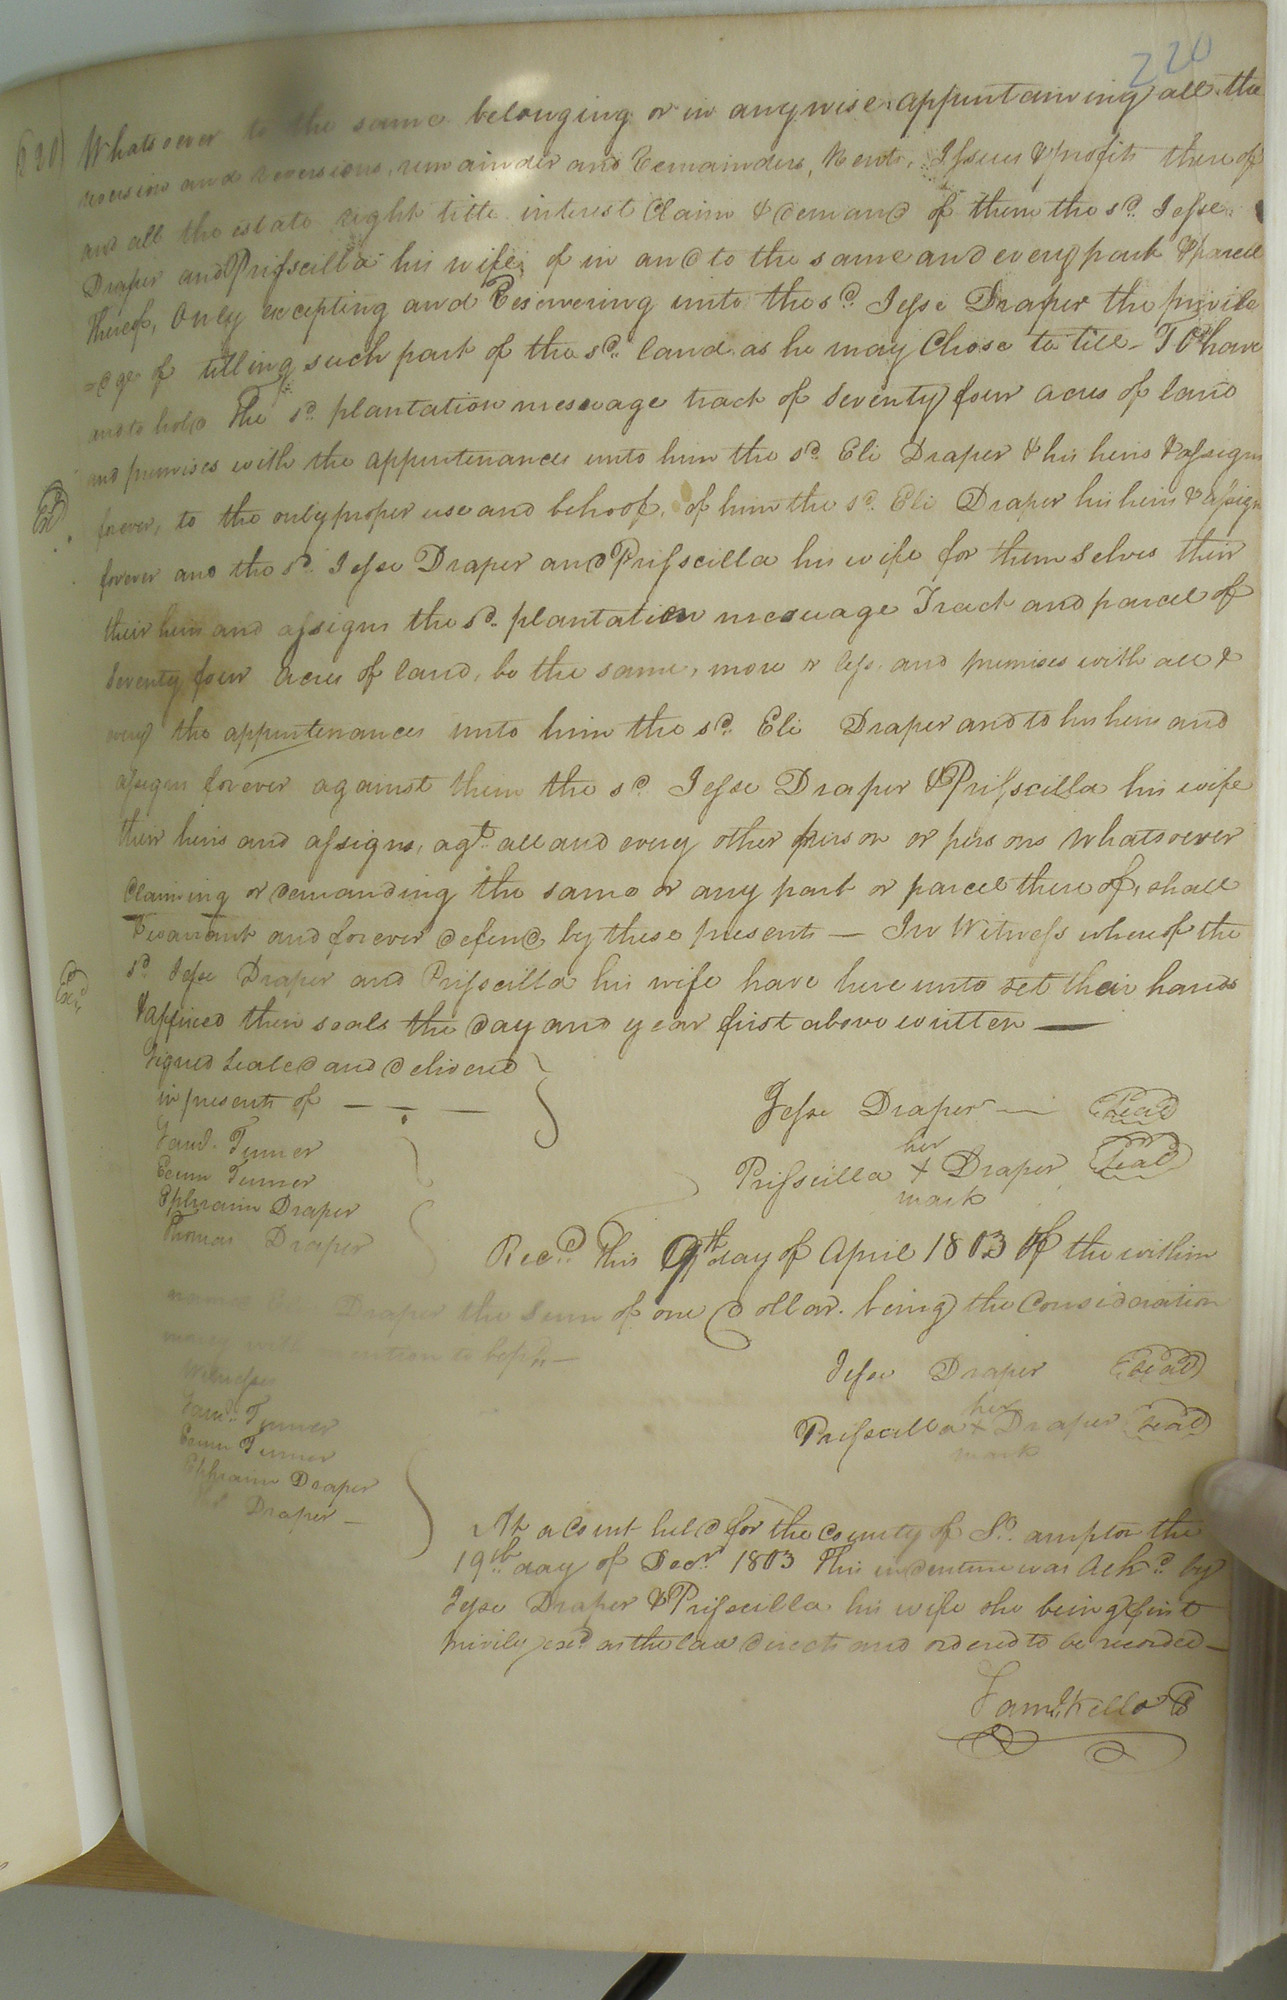 220
(220)
Whatsoever to the same belonging or in any wise appurtaining all the
reversion and reversions, remainder and Remainders, Rents, Issues & profits there of
and all the estate right title interest Claim & demand of them the sd. Jesse
Draper and Prisscilla his wife of in and to the same and every part & parcel
thereof, Only excepting and Reserveing unto the sd. Jesse Draper the privile
=ege of tilling such part of the sd. land as he may Chose to till - To have
and to hold The sd. plantation mesuage track of Seventy four acres of land
and premises with the appurtenances unto him the sd. Eli Draper & his heirs & assigns
forever, to the only proper use and behoof, of him the sd. Eli Draper his heirs & assigns
forever and the sd. Jesse Draper and Prisscilla his wife for themselves their
their heirs and assigns the sd. plantation mesuage Track and parcel of
Seventy four acres of land, be the same, more or less, and premises with all &
every the appurtenances unto him the sd. Eli Draper and to his heirs and
assigns forever against them the sd. Jesse Draper & Prisscilla his wife
their heirs and assigns, agt. all and every other person or persons Whatsoever
Claiming or demanding the same or any part or parcel there of, shall
and forever defend by these presents — In Witness whereof the
sd. Jesse Draper and Prisscilla his wife have here unto set their hands
& affixed their seals the day and year first above written —
Signed Sealed and delivered
in presents of — — —
Jesse Draper — Seal
Saml. Turner
her
Prisscilla + Draper Seal
mark
Turner
Ephraim Draper
Thomas Draper
Recd. This 9th day of April 1803 Of the within
named Draper the Sum of one dollar being the Consideration
mention to be pd. —
Jesse Draper Seal
Witnesses
her
Prisscilla + Draper Seal
mark
Saml. Turner
Turner
Ephraim Draper
Draper —
At a Court held for the County of So. ampton the
19th day of Decr. 1803 This indenture was Ackd. by
Jesse Draper & Prisscilla his wife she being first
privily exd. as the law directs and ordered to be recorded —
Saml. Kello C
Exd.